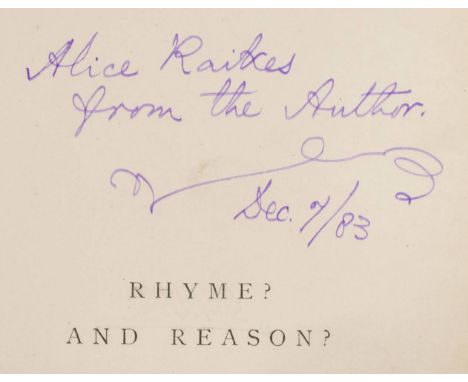 Alice Raikes
from the Author.
Dec. 7/83
RHYME?
AND REASON?